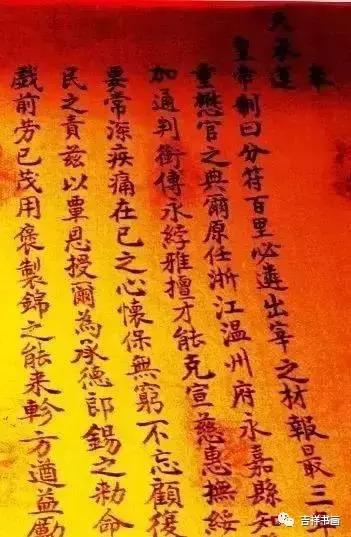 奉
天承運
皇帝制曰分符百里必遴出宰之材報最三年
重懋官之典爾原任浙江温州府永嘉縣知
加通判銜傅永綍雅擅才能克宣慈惠撫綏
要常深疾痛在已之心懷保無窮不忘顧復
民之責茲以覃恩授爾為承德郎錫之勅命
戲前芳已茂用褒製錦之能來軫方遒益勵
吉祥书画